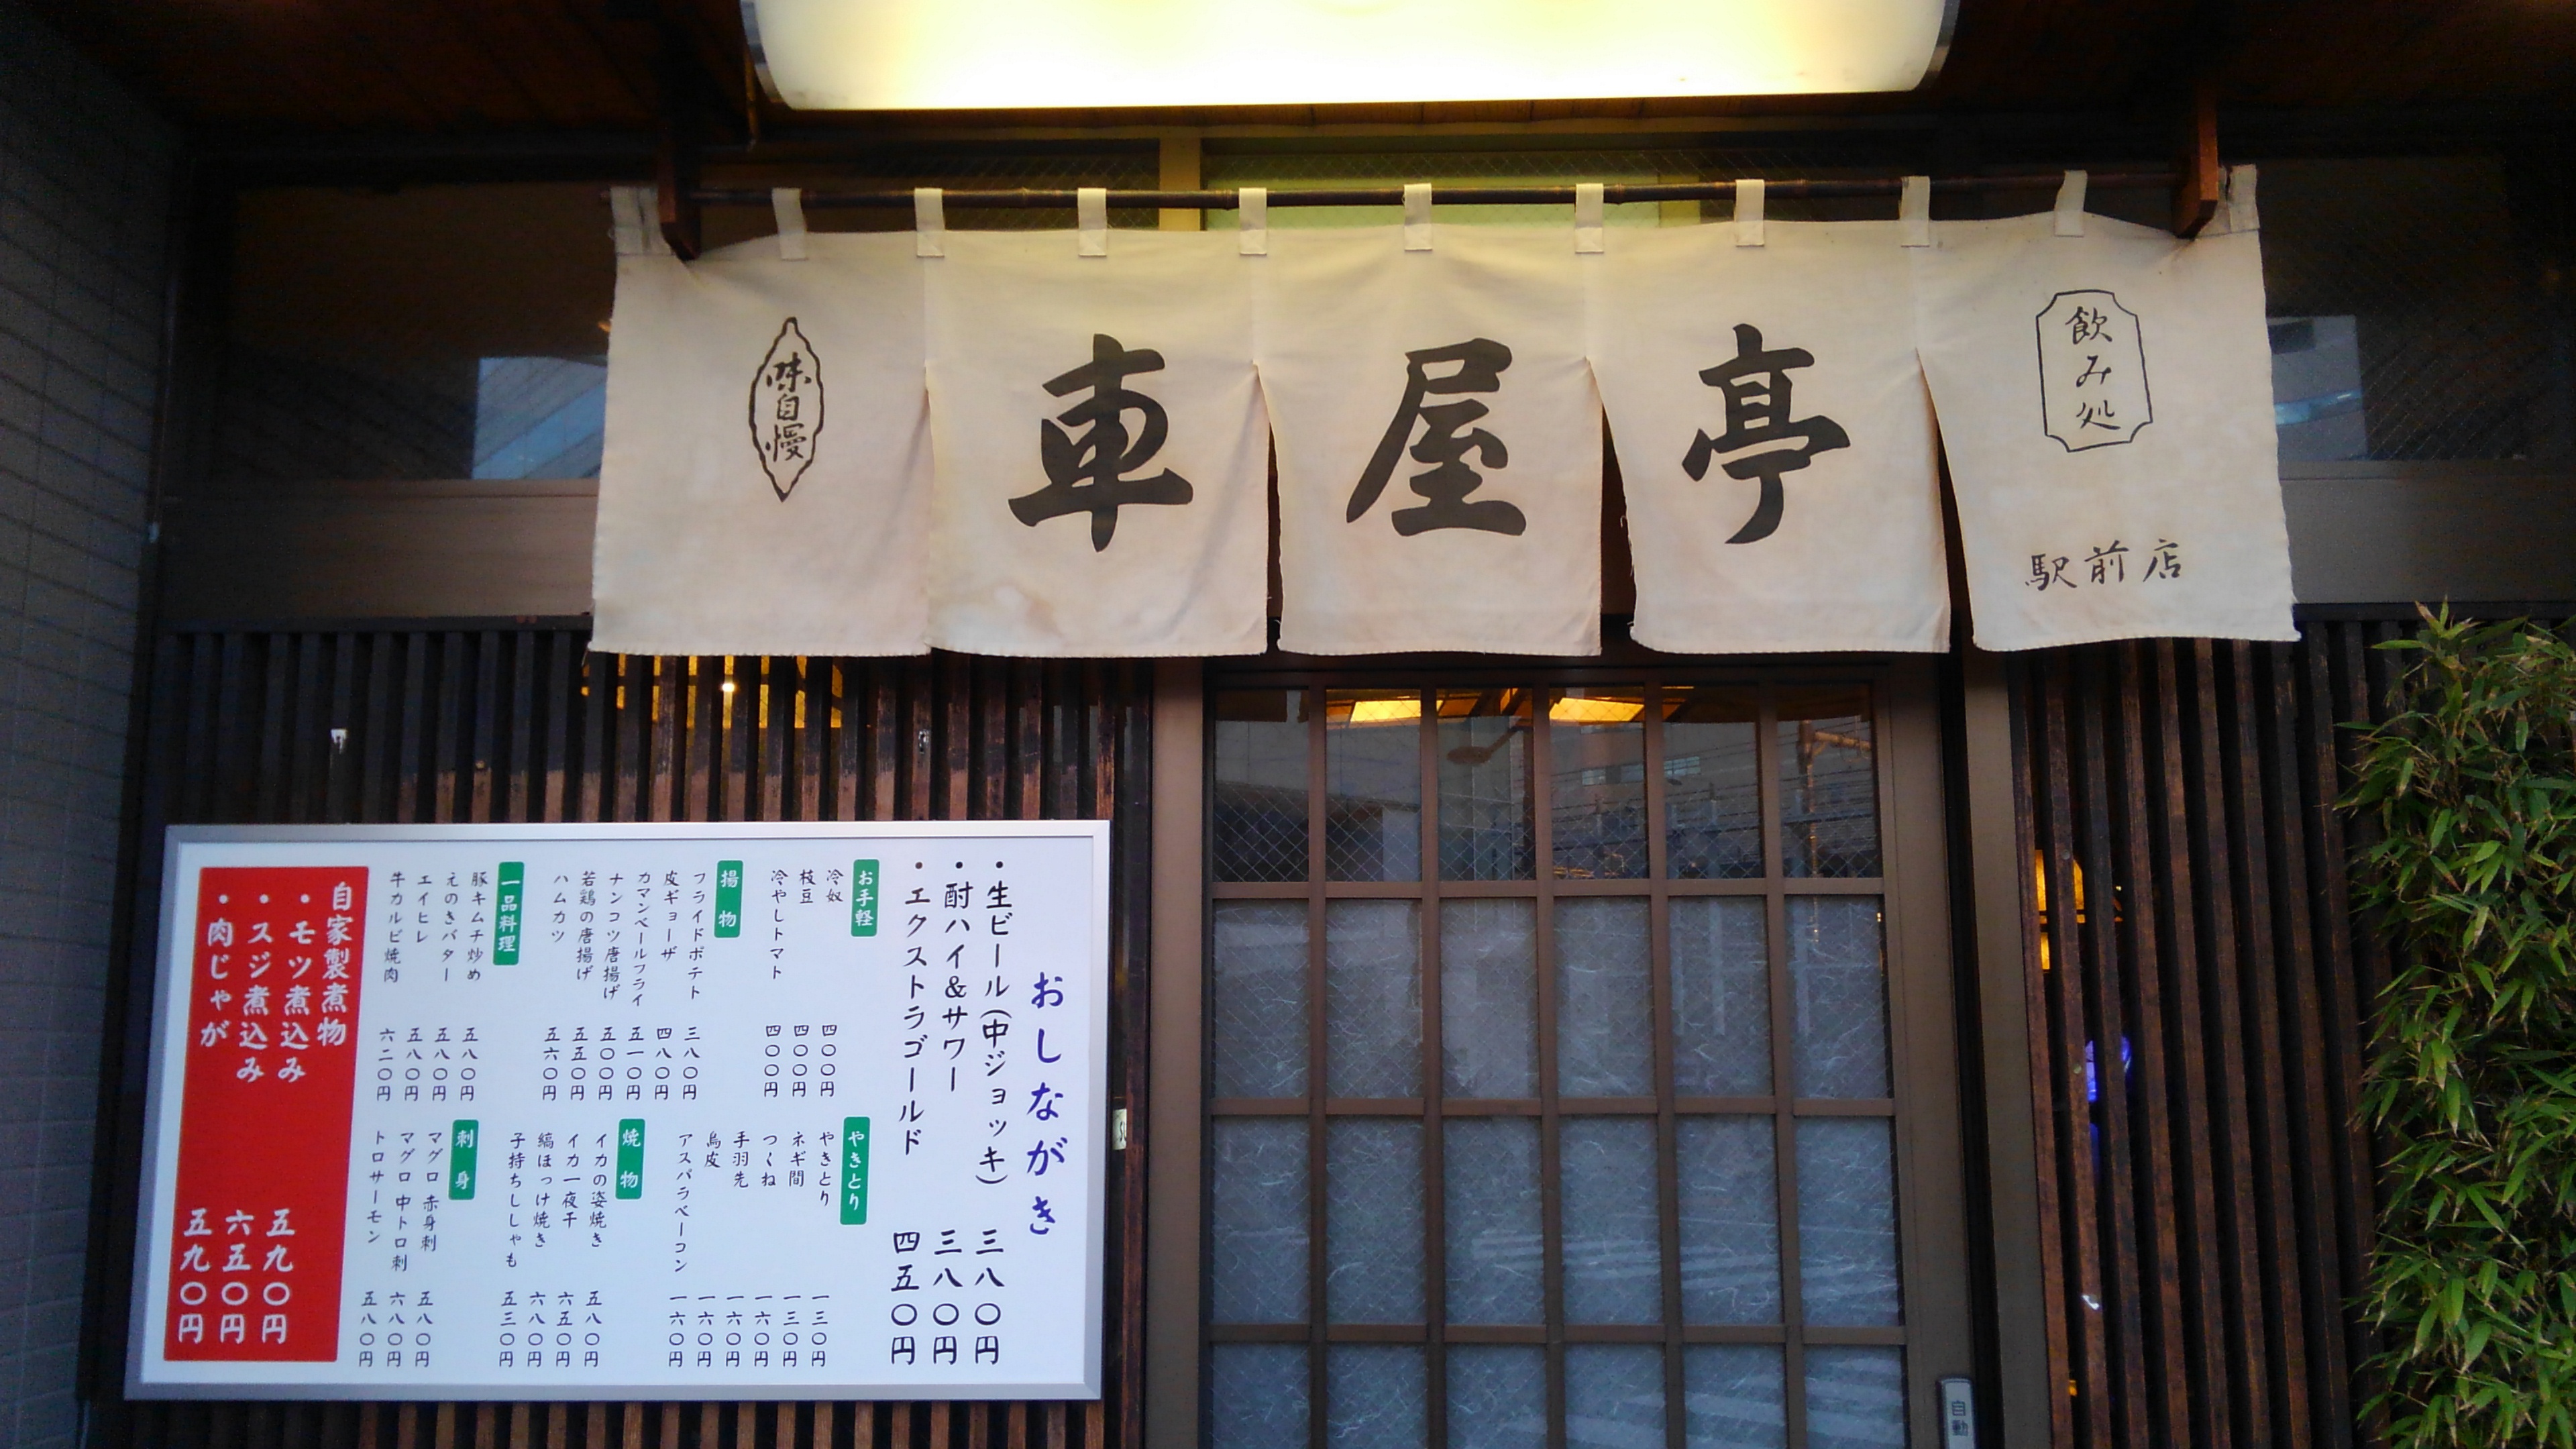 味自慢
車屋亭
飲み処
駅前店
おしながき
・生ビール(中ジョッキ) 三八〇円
・酎ハイ&サワー 三八〇円
・エクストラゴールド 四五〇円
お手軽
冷奴 四〇〇円
枝豆 四〇〇円
冷やしトマト 四〇〇円
揚物
フライドポテト 三八〇円
皮ギョーザ 四八〇円
カマンベールフライ 五一〇円
ナンコツ唐揚げ 五〇〇円
若鶏の唐揚げ 五五〇円
ハムカツ 五六〇円
一品料理
豚キムチ炒め 五八〇円
えのきバター 五八〇円
エイヒレ 五八〇円
牛カルビ焼肉 六二〇円
やきとり
やきとり 一三〇円
ネギ間 一三〇円
つくね 一六〇円
手羽先 一六〇円
鳥皮 一六〇円
アスパラベーコン 一六〇円
焼物
イカの姿焼き 五八〇円
イカ一夜干 六五〇円
縞ほっけ焼き 六八〇円
子持ちししゃも 五三〇円
刺身
マグロ 赤身刺 五八〇円
マグロ 中トロ刺 六八〇円
トロサーモン 五八〇円
自家製煮物
・モツ煮込み 五九〇円
・スジ煮込み 六五〇円
・肉じゃが 五九〇円
自動